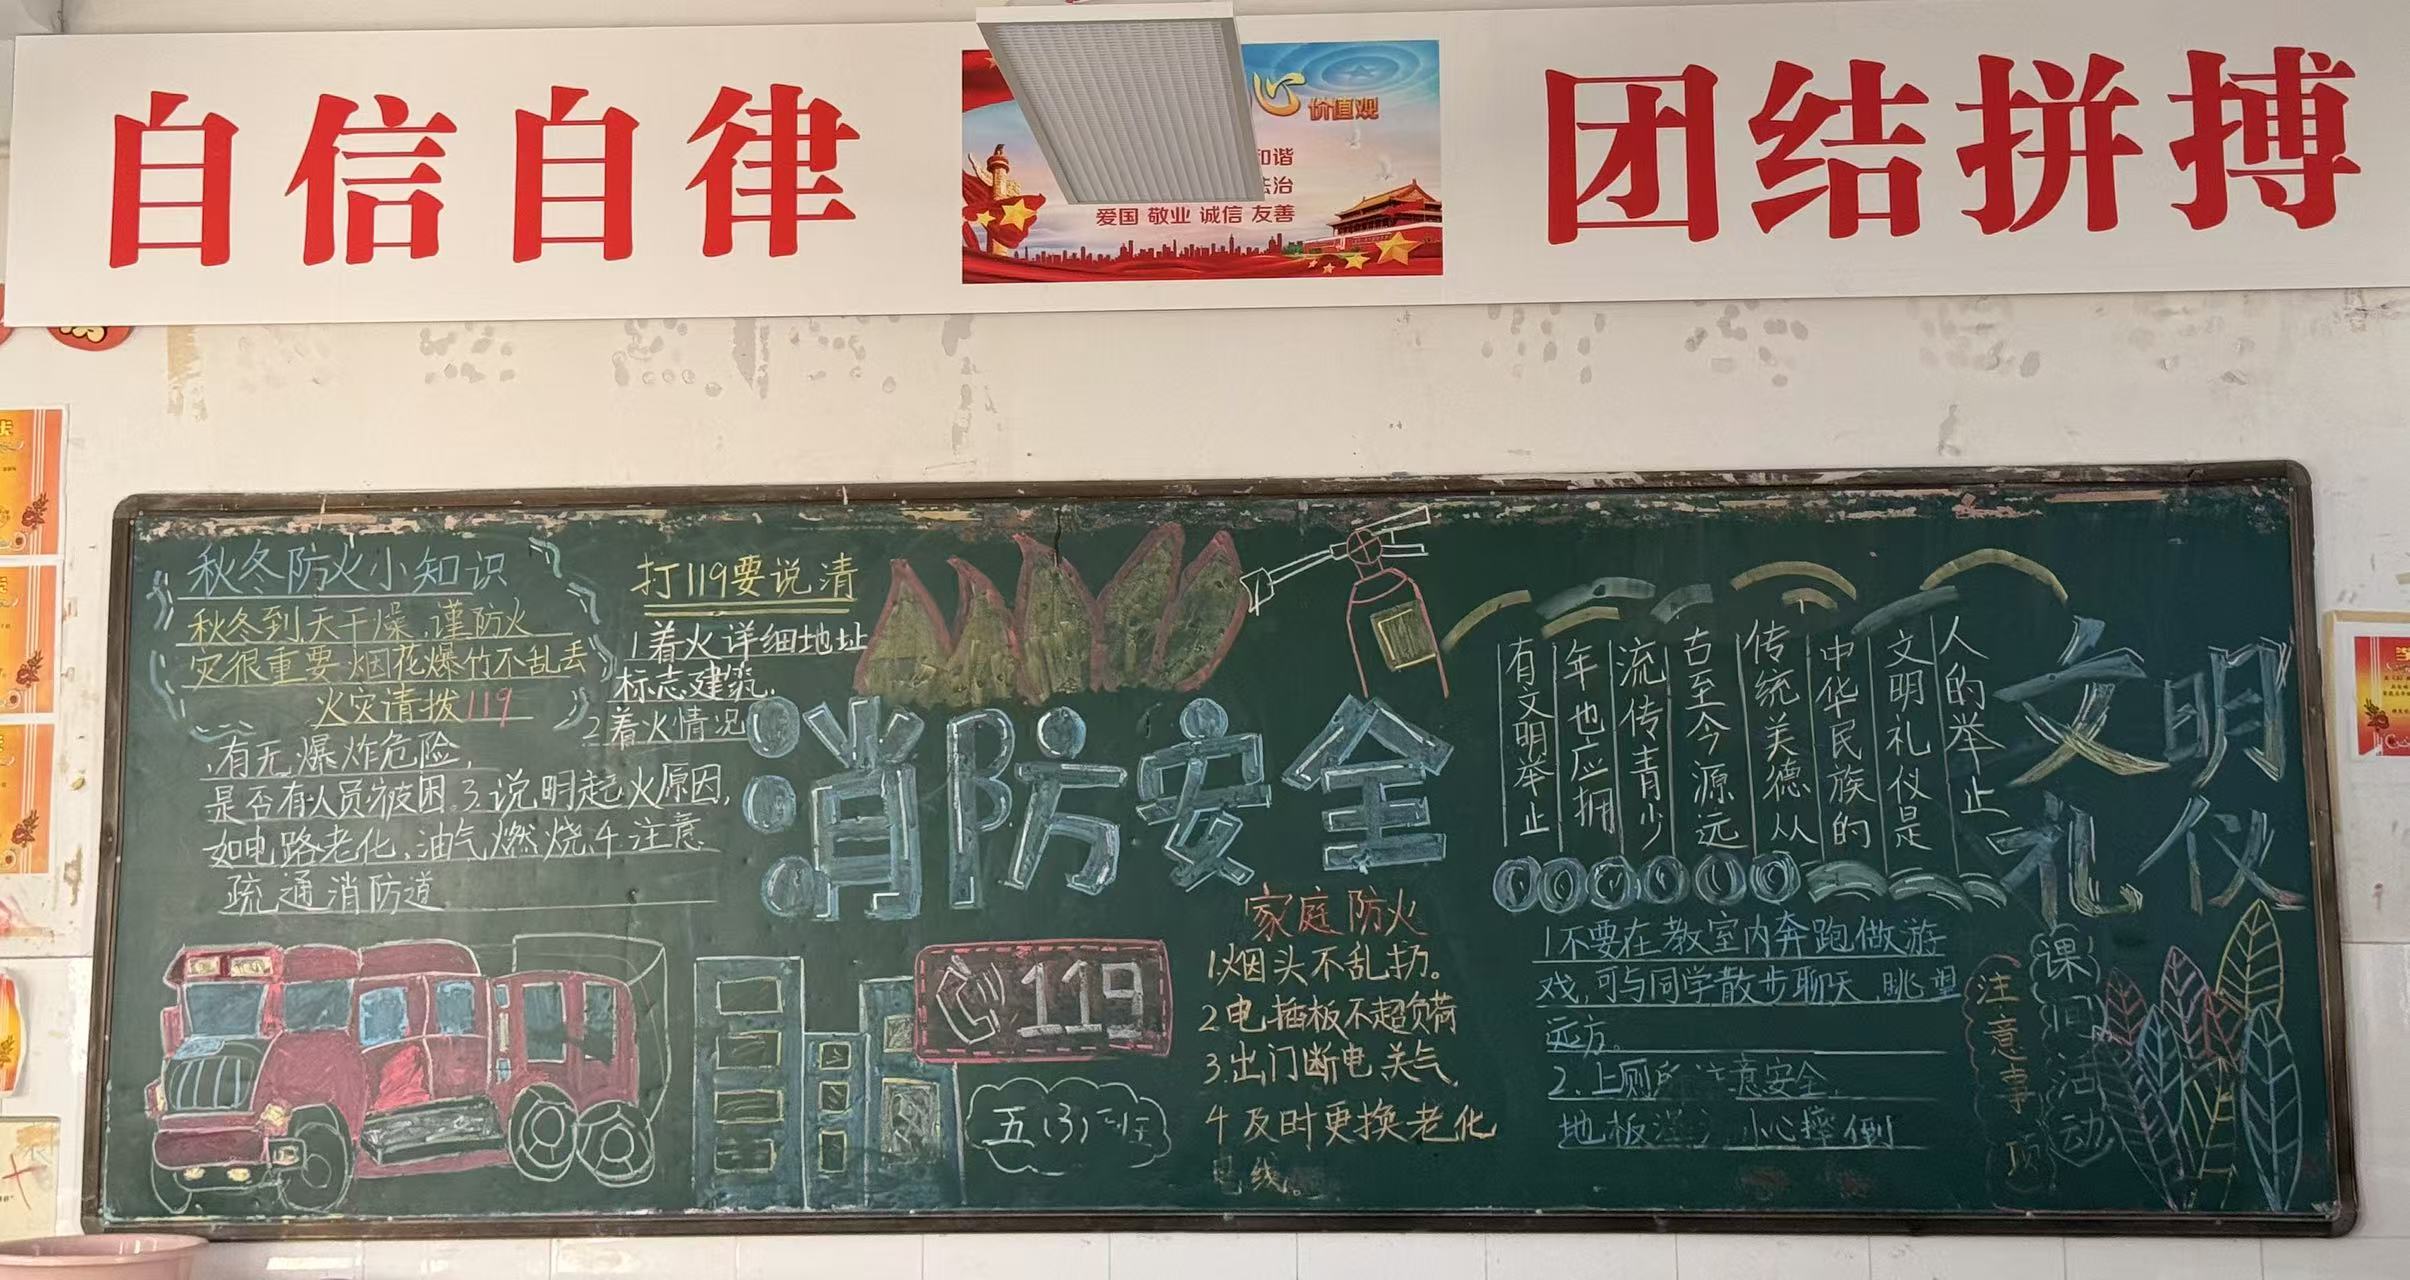 自信自律
价值观
和谐
法治
爱国 敬业 诚信 友善
团结拼搏
秋冬防火小知识
秋冬到,天干燥,谨防火
灾很重要.烟花爆竹不乱丢
火灾请拨119
打119要说清
1着火详细地址
标志建筑.
2着火情况
,有无爆炸危险,
是否有人员被困.3.说明起火原因,
如电路老化,油气燃烧.4.注意
疏通消防道
消防安全
119
五(3)班
家庭防火
1.烟头不乱扔。
2电插板不超负荷
3.出门断电关气.
4及时更换老化
电线。
文明
礼仪
人的举止
文明礼仪是
中华民族的
传统美德从
古至今源远
流传青少
年也应拥
有文明举止
课间活动
注意事项
1不要在教室内奔跑做游
戏,可与同学散步聊天,眺望
远方。
2.上厕所注意安全.
地板 小心摔倒